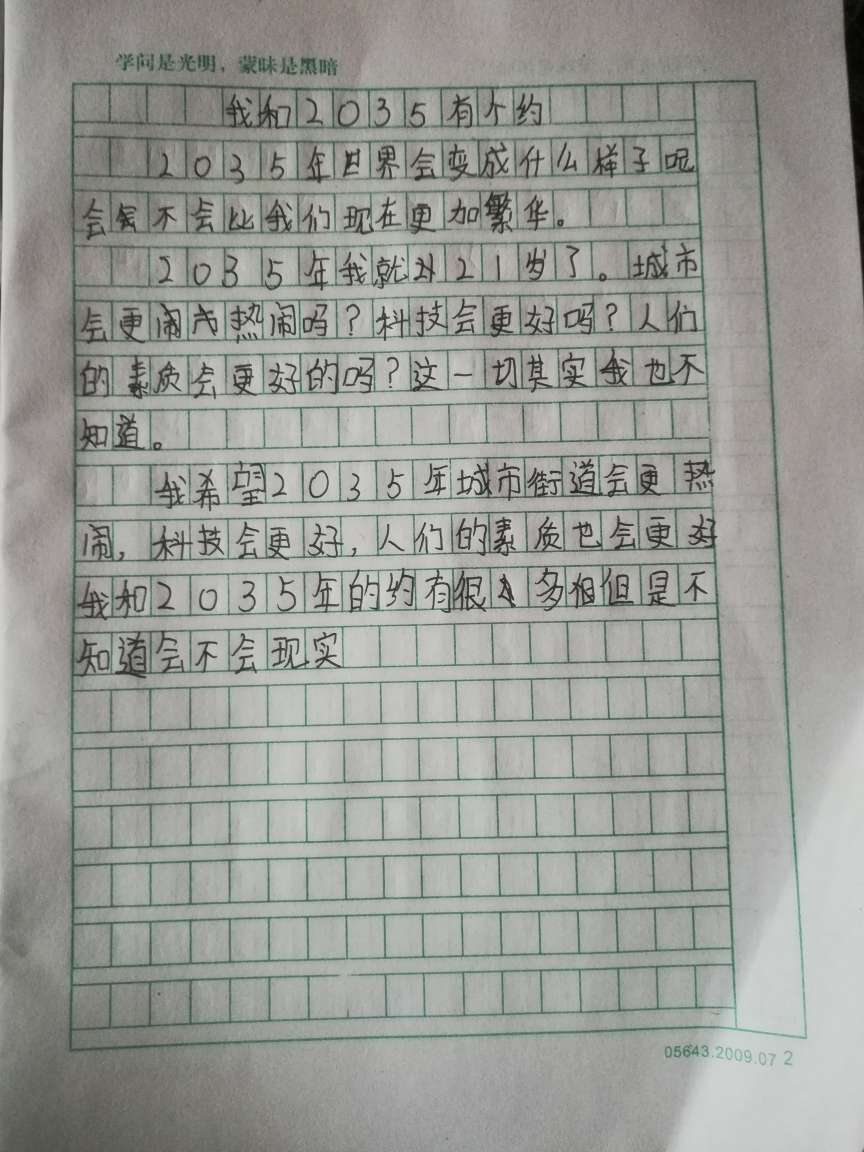 学问是光明，蒙昧是黑暗
我和2035有个约
2035年世界会变成什么样子呢
会不会比我们现在更加繁华。
2035年我就21岁了。城市
会更热闹吗？科技会更好吗？人们
的素质会更好的吗？这一切其实我也不
知道。
我希望2035年城市街道会更热
闹，科技会更好，人们的素质也会更好
我和2035年的约有很多但是不
知道会不会现实
05643.2009.07 2